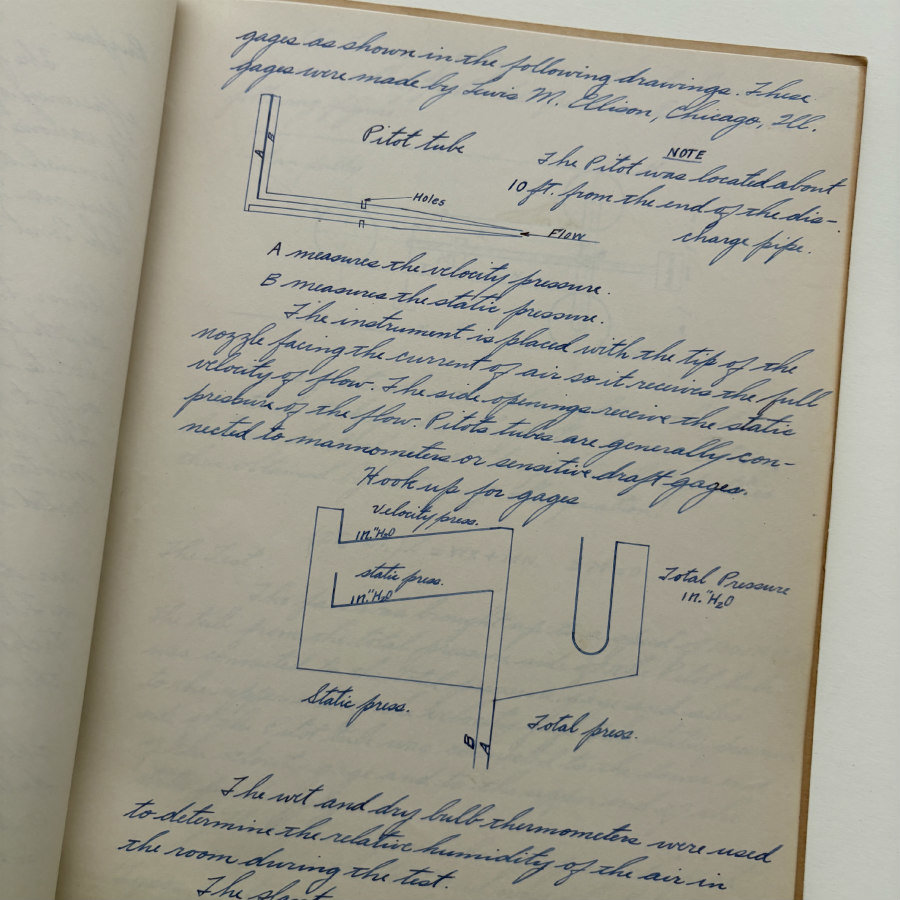 gages as shown in the following drawings. These
gages were made by Lewis M. Ellison, Chicago, Ill.
A
B
Pitot tube
Holes
Flow
NOTE
The Pitot was located about
10 ft. from the end of the dis-
charge pipe.
A measures the velocity pressure.
B measures the static pressure.
The instrument is placed with the tip of the
nozzle facing the current of air so it receives the full
velocity of flow. The side openings receive the static
pressure of the flow. Pitots tubes are generally con-
nected to mannometers or sensitive draft gages.
Hook up for gages
velocity press.
in."H₂O
static press.
in."H₂O
Total Pressure
in."H₂O
Static press.
Total press.
B
A
The wet and dry bulb thermometers were used
to determine the relative humidity of the air in
the room during the test.
The